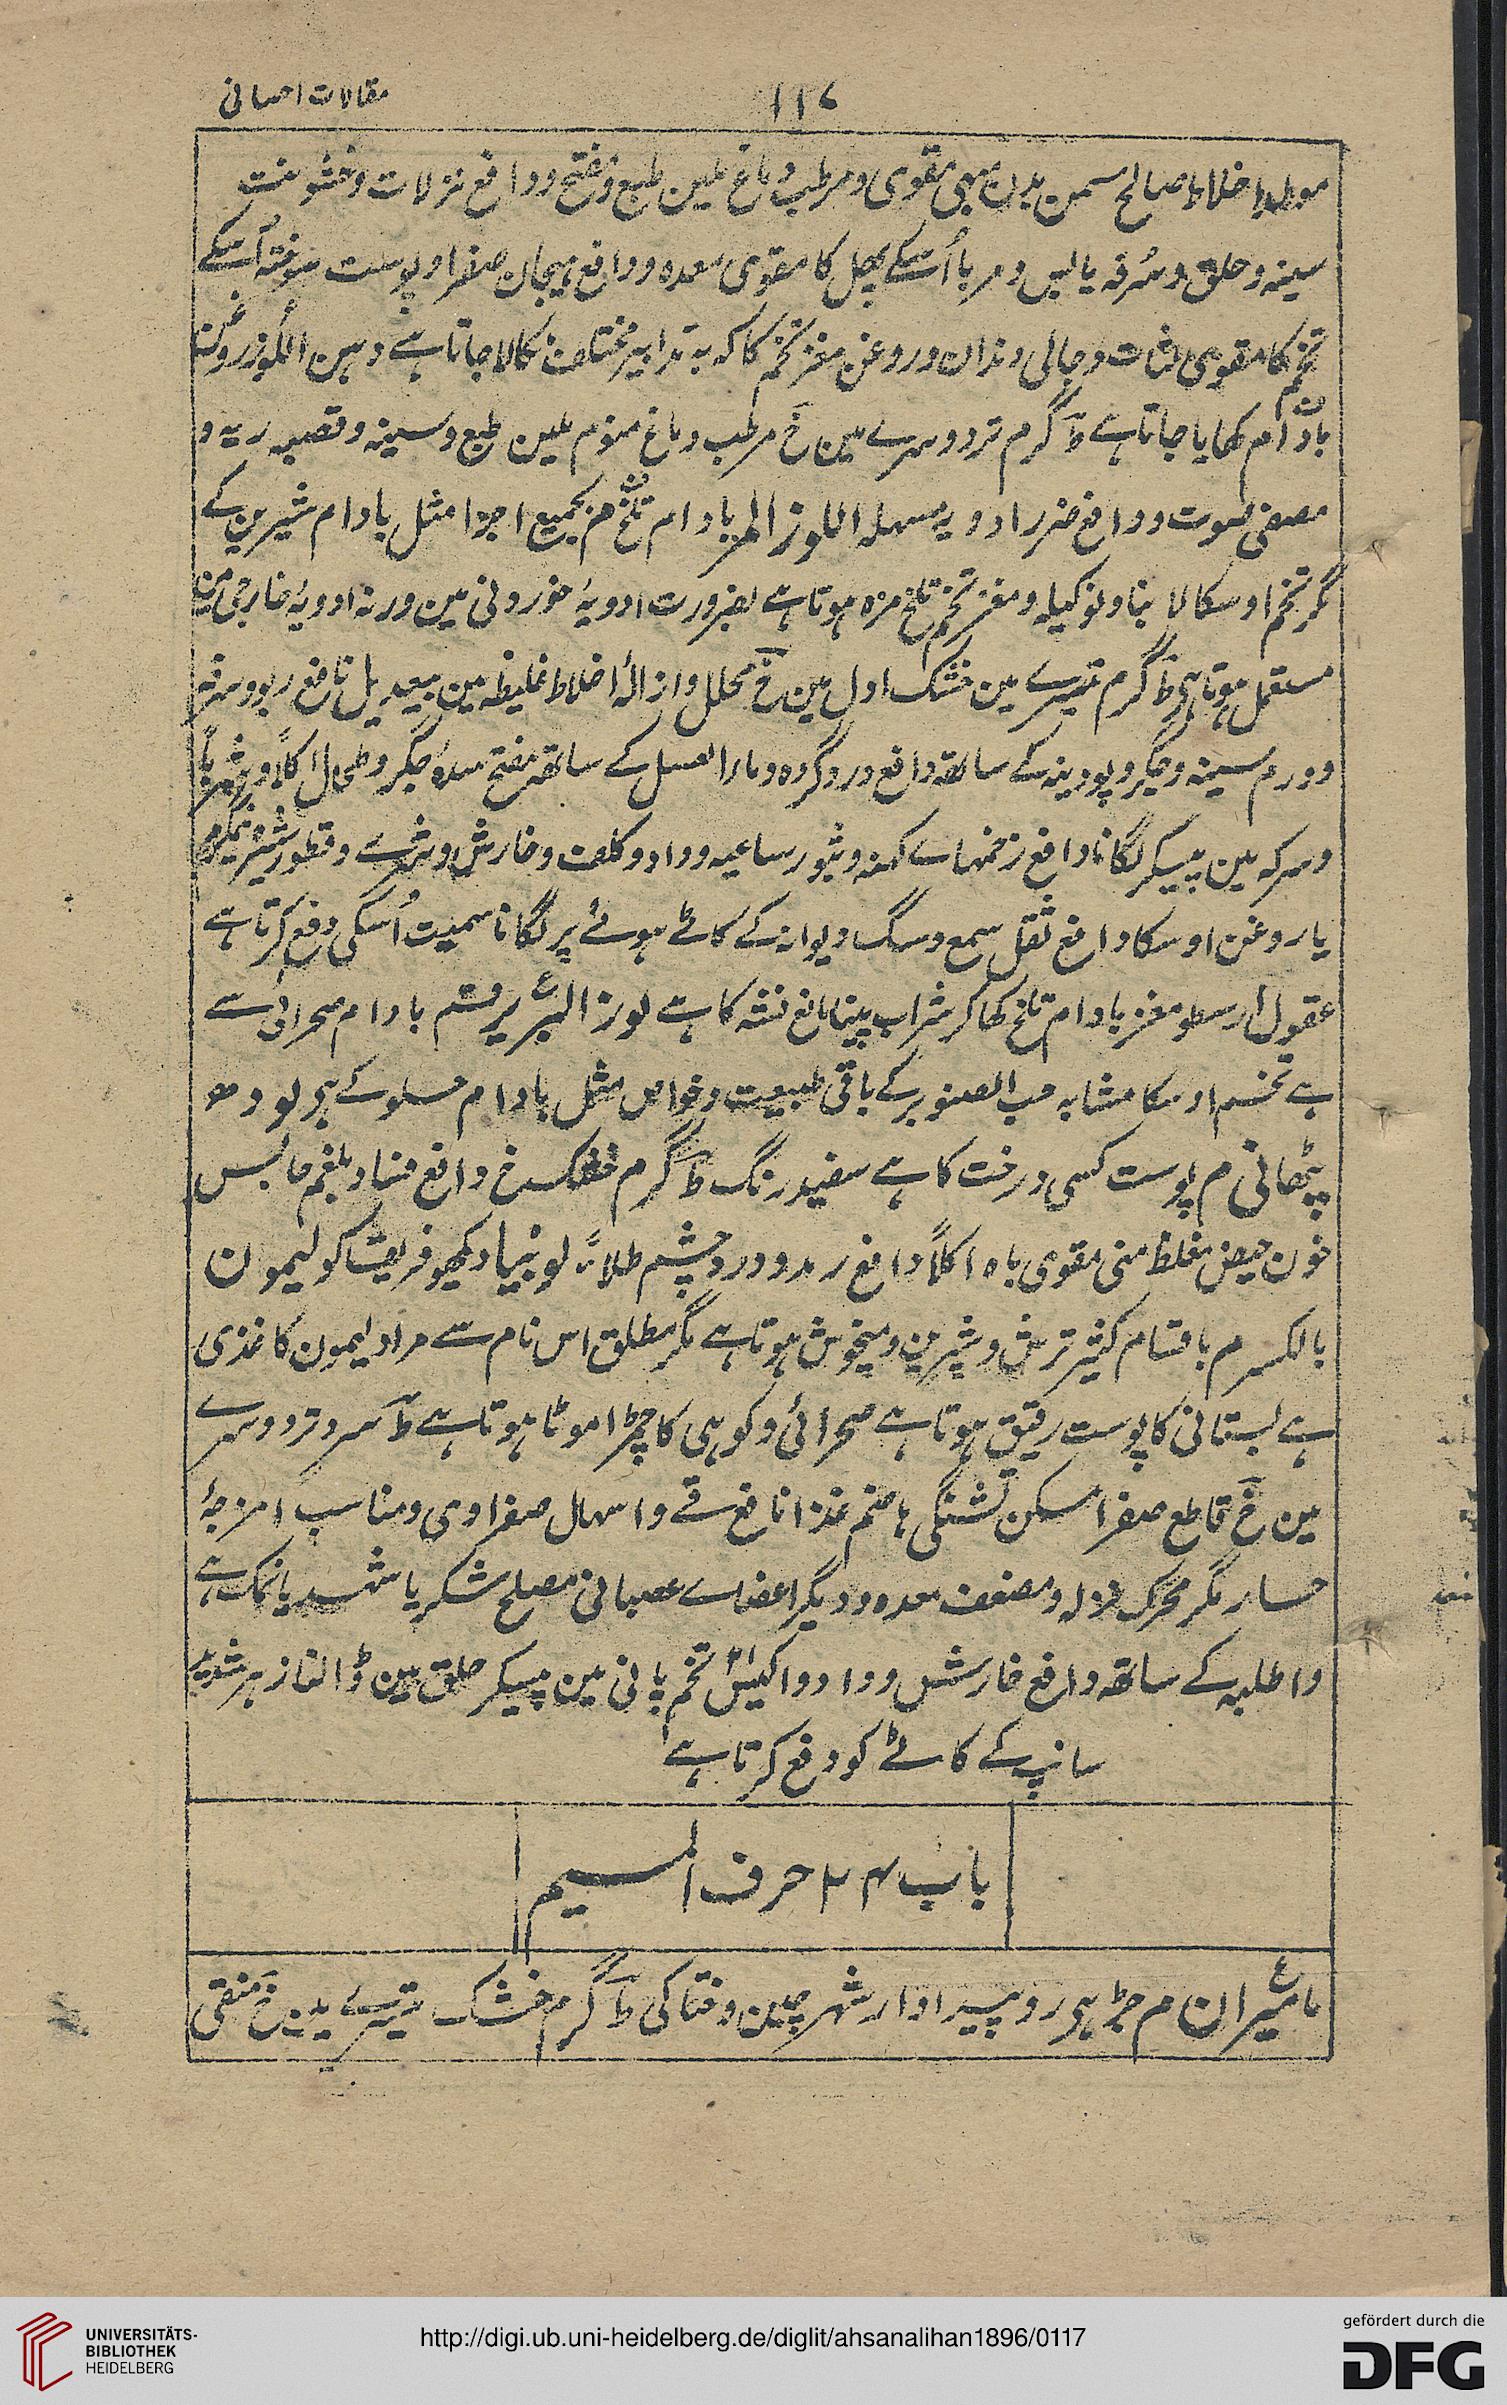 مقالات احسانی
۱۱۷
مولد اخلاط صالح مسمن بدن مبہی مقوی و مرطب دماغ ملین طبع و مفتح و دافع نزلات و خشونت
سینہ و حلق و سرفہ یابس و مربا اُسکے پھل کا مقوی معدہ و دافع ہیجان صفرا و پوست سوختہ اُسکے
تخم کا مقوی لثات و جالی دندان و روغن مغز تخم کا کہ بہ تدابیر مختلف نکالا جاتا ہے دہن اللوز روغن
بادام کہا یا جاتا ہے ط گرم تر دوسرے مین خ مرطب دماغ منوم ملین طبع و سینہ و قصبہ ریہ و
مصفی صوت و دافع ضرر ادویہ مسہلہ اللوز المر بادام تلخ م بجمیع اجزا مثل بادام شیرین کے
مگر تخم اوسکا لانبا و نوکیلہ و مغز تخم تلخ مزہ ہوتا ہے بضرورت ادویۂ خوردنی مین ورنہ ادویۂ خارجی مین
مستعمل ہوتا ہی ط گرم تیسرے مین خشک اول مین خ محلل و ازالۂ اخلاط غلیظہ مین بیعدیل نافع ربو و سرفہ
و ورم سینہ و جگر و پودینہ کے ساتھ دافع درد گردہ و ماء العسل کے ساتھ مفتح سدہ جگر و طحال اکلاً و شرباً
و سرکہ مین پیسکر لگانا دافع زخمہاے کہنہ و بثور ساعیہ و داد و کلف و خارش و شرے و قطور شیرہ نیمگرم
یا روغن اوسکا دافع ثقل سمع و سگ دیوانہ کے کاٹے ہوئے پر لگانا سمیت اُسکی دفع کرتا ہے
بقول ارسطو مغز بادام تلخ کھا کر شراب پینا مانع نشہ کا ہے لوز البربر قسم بادام صحرائی سے
ہے تخم اوسکا مشابہ حب الصنوبر کے باقی طبیعت و خواص مثل بادام حلو کے ہی لودھ
پٹھانی م پوست کسی درخت کا ہے سفید رنگ ط گرم خشک خ دافع فساد بلغم حابس
خون حیض مغلظ منی مقوی باہ اکلاً دافع رمد و درد چشم طلاءً لوبیا دیکھو فریقا کو لیمون
بالکسر م باقسام کثیر ترش و شیرین و میخوش ہوتا ہے مگر مطلق اس نام سے مراد لیمون کاغذی
ہے بستانی کا پوست رقیق ہوتا ہے صحرائی و کوہی کا چمڑا موٹا ہوتا ہے ط سرد تر دوسرے
مین خ قاطع صفرا مسکن تشنگی ہاضم غذا نافع قے و اسہال صفراوی و مناسب امزجۂ
حسار مگر محرک نزلہ و مضعف معدہ و دیگر اعضاے عصبانی مصلح شکر یا شہد یا نمک ہے
و اطلیہ کے ساتھ دافع خارش و داد و اکیس تخم پانی مین پیسکر حلق مین ڈالنا زہر شدید
سانپ کے کاٹے کو دفع کرتا ہے
باب ۲۴ حرف المیم
مامیران م جڑ ہی رو پیداوار شہر چین و ختا کی ط گرم خشک تیسرے مین خ منقی
UNIVERSITÄTS-
BIBLIOTHEK
HEIDELBERG
http://digi.ub.uni-heidelberg.de/diglit/ahsanalihan1896/0117
gefördert durch die
DFG